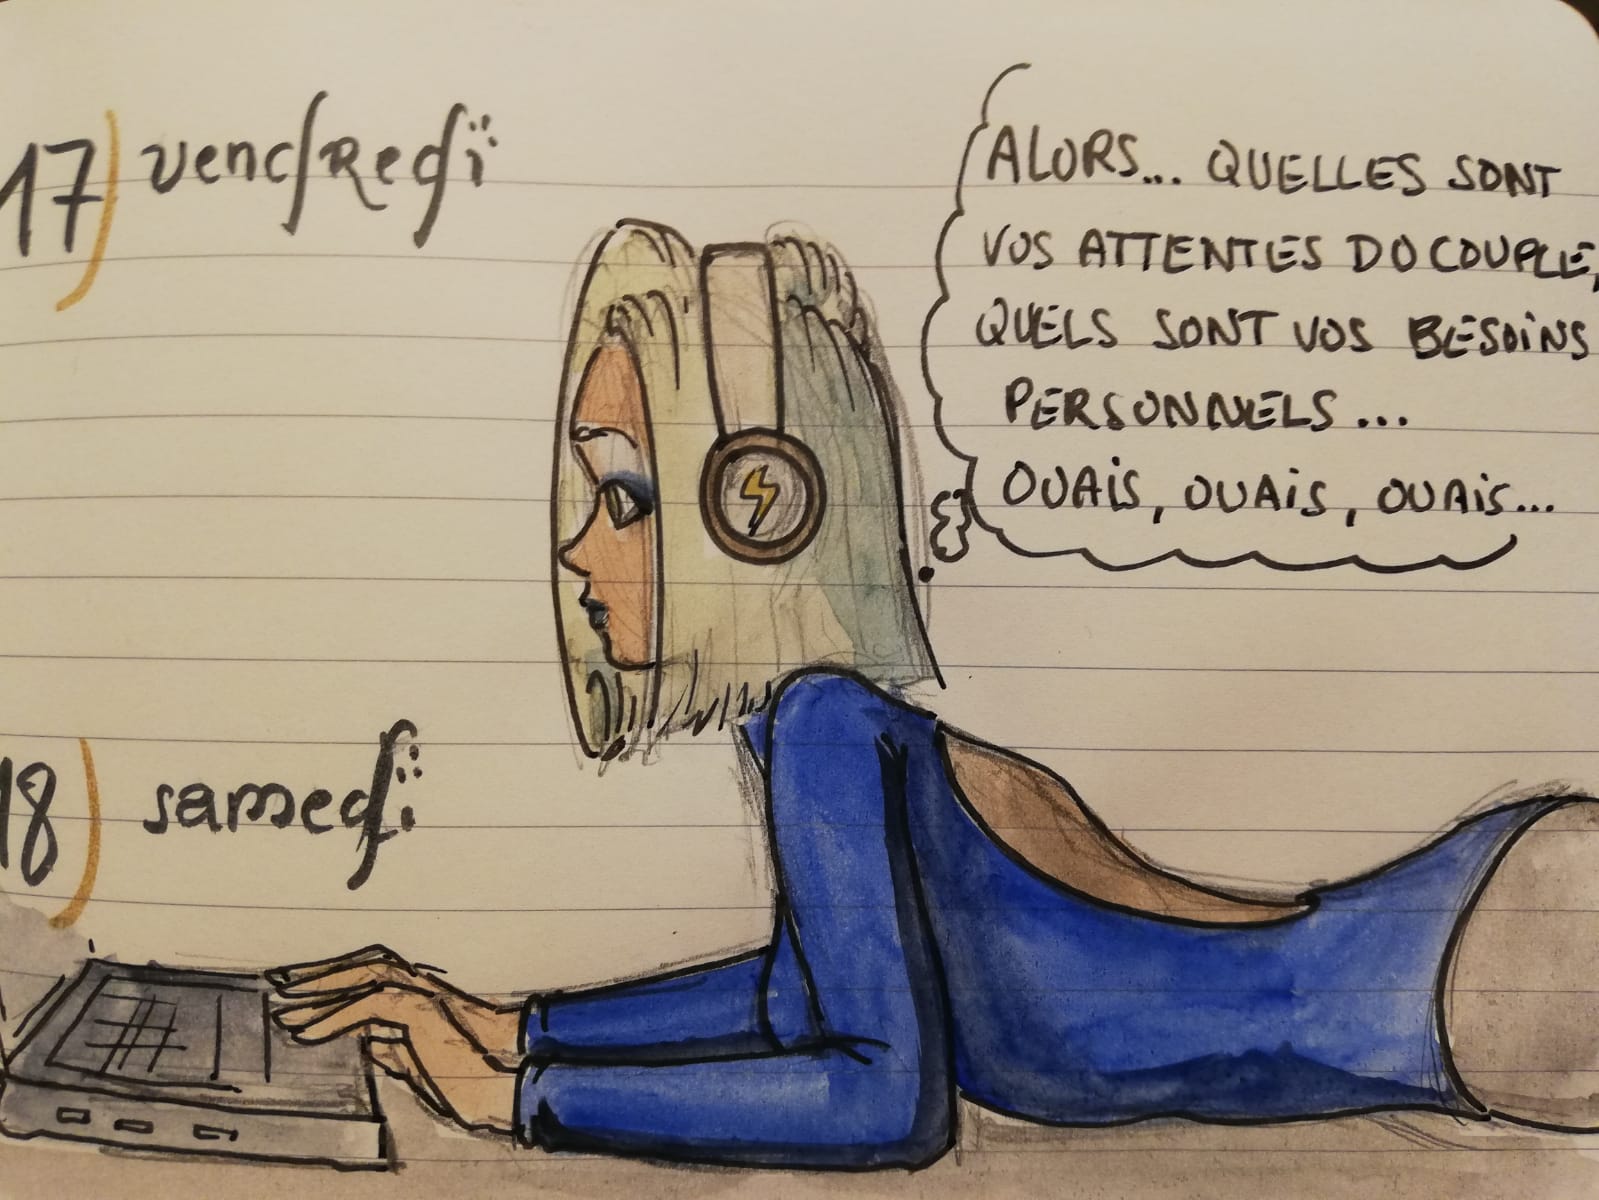 17) vendredi
ALORS... QUELLES SONT
VOS ATTENTES DU COUPLE,
QUELS SONT VOS BESOINS
PERSONNELS...
OUAIS, OUAIS, OUAIS...
18) samedi